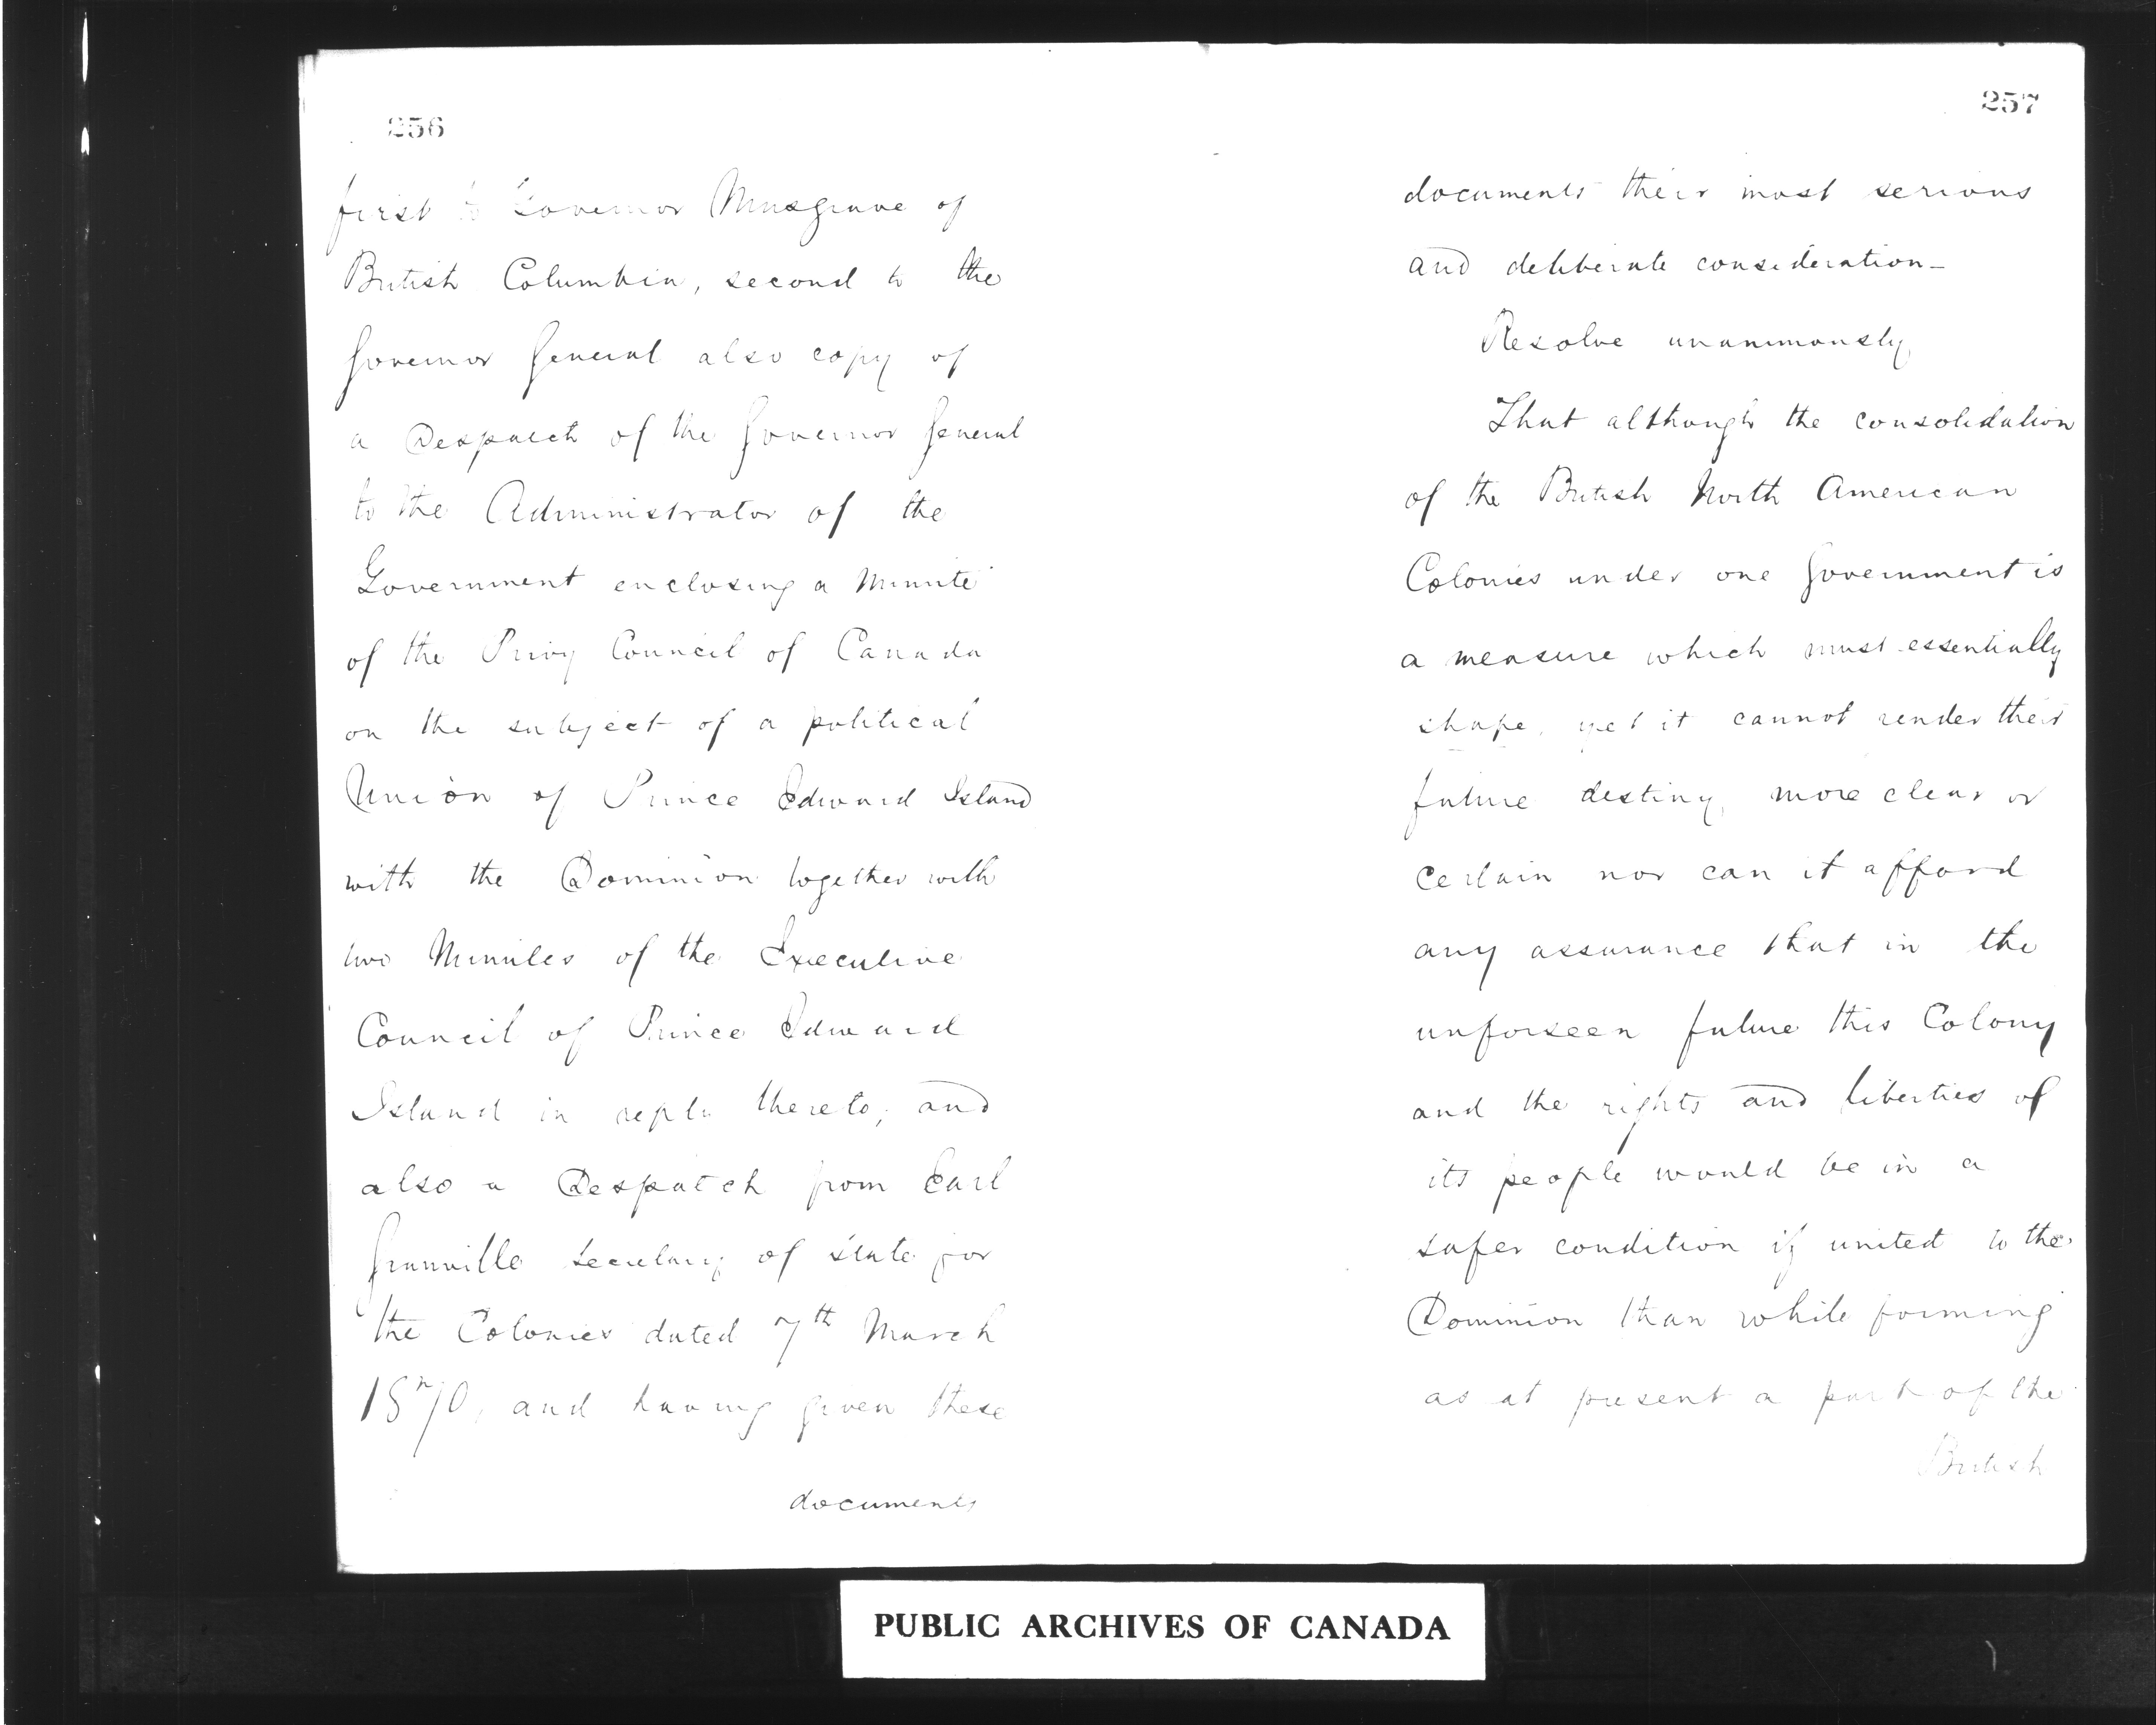 256
first to Governor Musgrave of
British Columbia, second to the
Governor General also copy of
a Despatch of the Governor General
to the Administrator of the
Government enclosing a Minute
of the Privy Council of Canada
on the subject of a political
Union of Prince Edward Island
with the Dominion together with
two Minutes of the Executive
Council of Prince Edward
Island in reply thereto, and
also a Despatch from Earl
Granville Secretary of State for
the Colonies dated 7th March
1870, and having given these
documents
257
documents their most serious
and deliberate consideration_
Resolve unanimously
That although the consolidation
of the British North American
Colonies under one Government is
a measure which must essentially
shape, yet it cannot render their
future destiny, more clear or
certain nor can it afford
any assurance that in the
unforseen future this Colony
and the rights and liberties of
its people would be in a
safer condition if united to the
Dominion than while forming
as at present a part of the
British
PUBLIC ARCHIVES OF CANADA